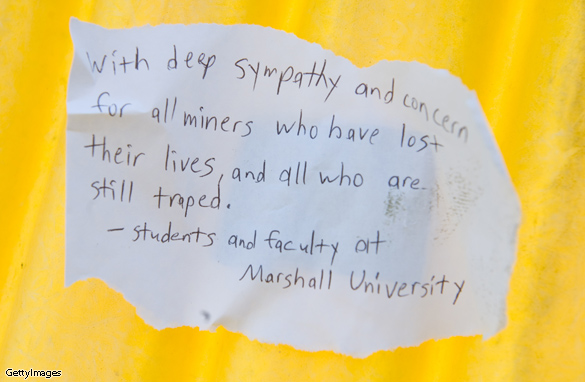 With deep sympathy and concern
for all miners who have lost
their lives, and all who are
still traped.
- students and faculty at
Marshall University
GettyImages